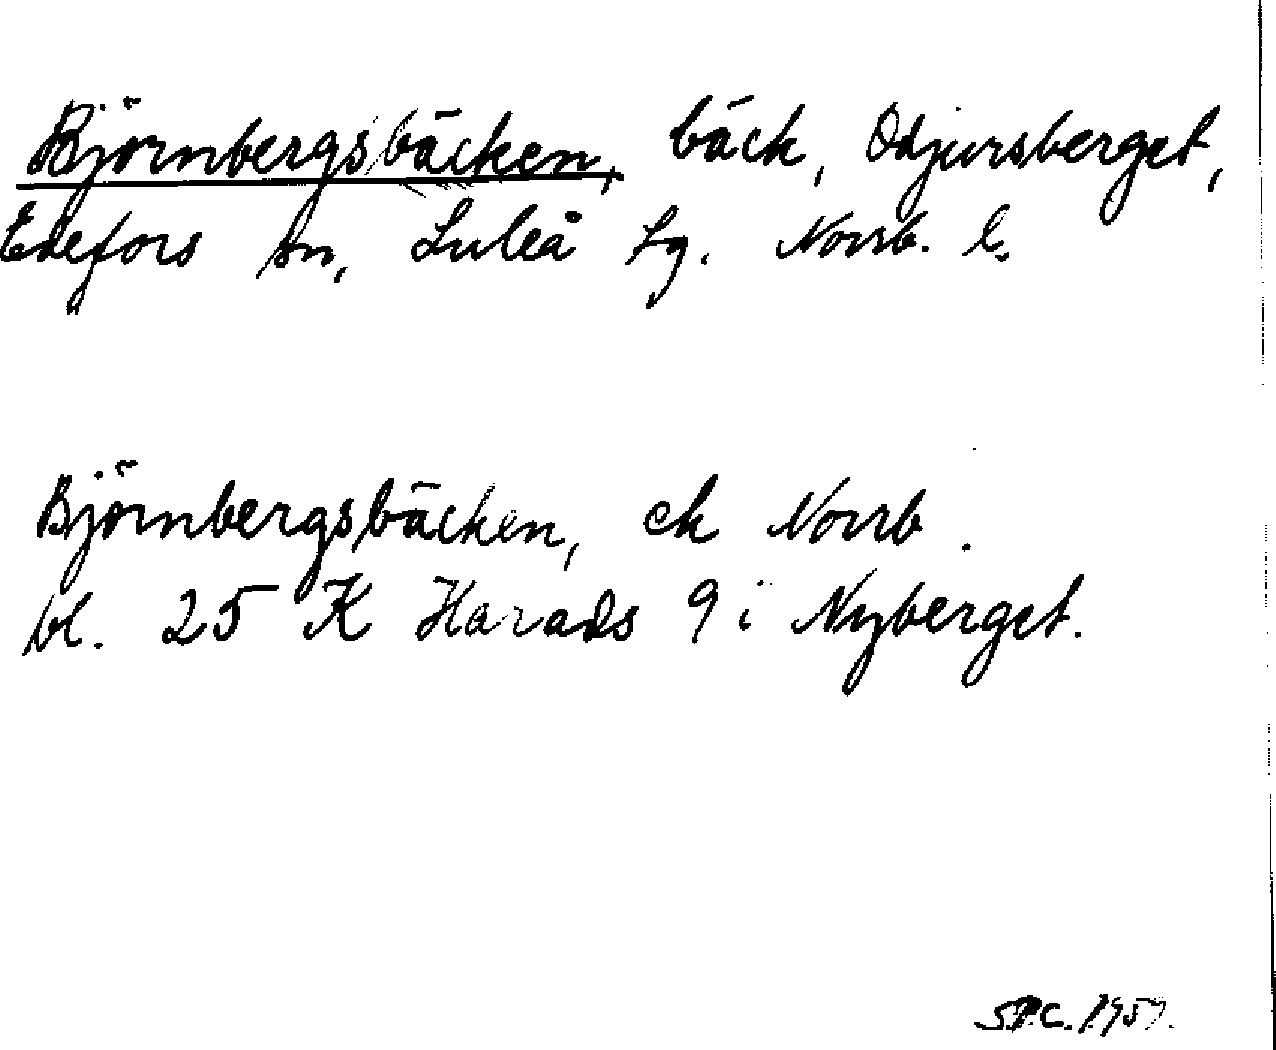 Björnbergsbäcken, bäck, Odjursberget,
Edefors sn, Luleå tg. Norrb. l.
Björnbergsbäcken, ek Norrb.
bl. 25 K Harads 9 i Nyberget.
S.P.C. 1957.